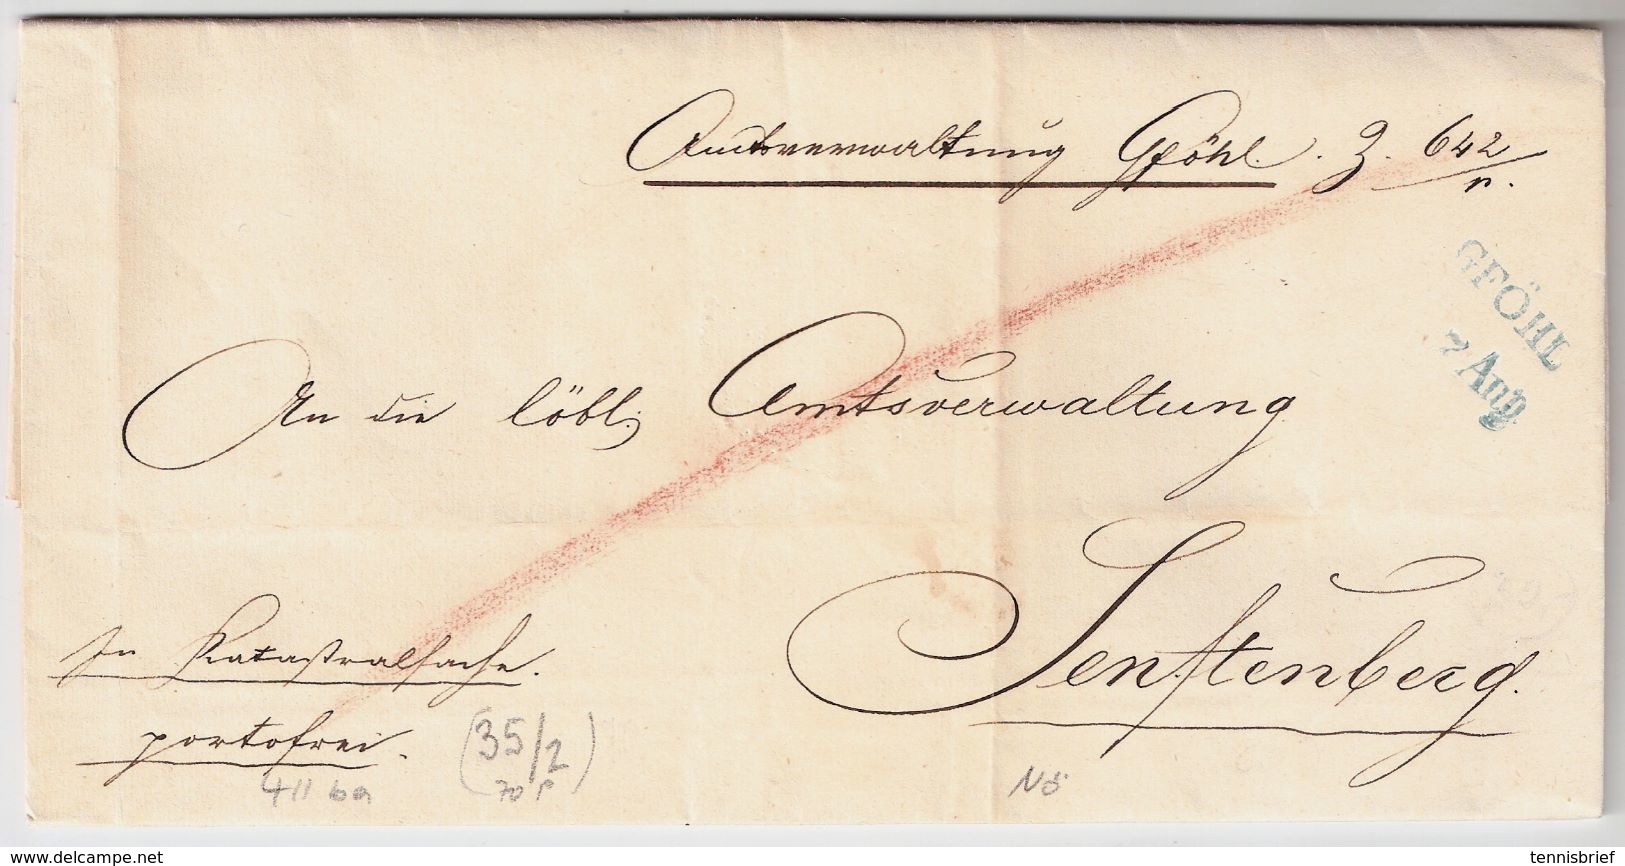 Amtsverwaltung Gföhl. Z. 642/r.
GFÖHL
2 Aug.
An die löbl: Amtsverwaltung
Senftenberg.
In Katastralsache.
portofrei.
(35/2)
70 P
411 ba
NÖ
www.delcampe.net
tennisbrief